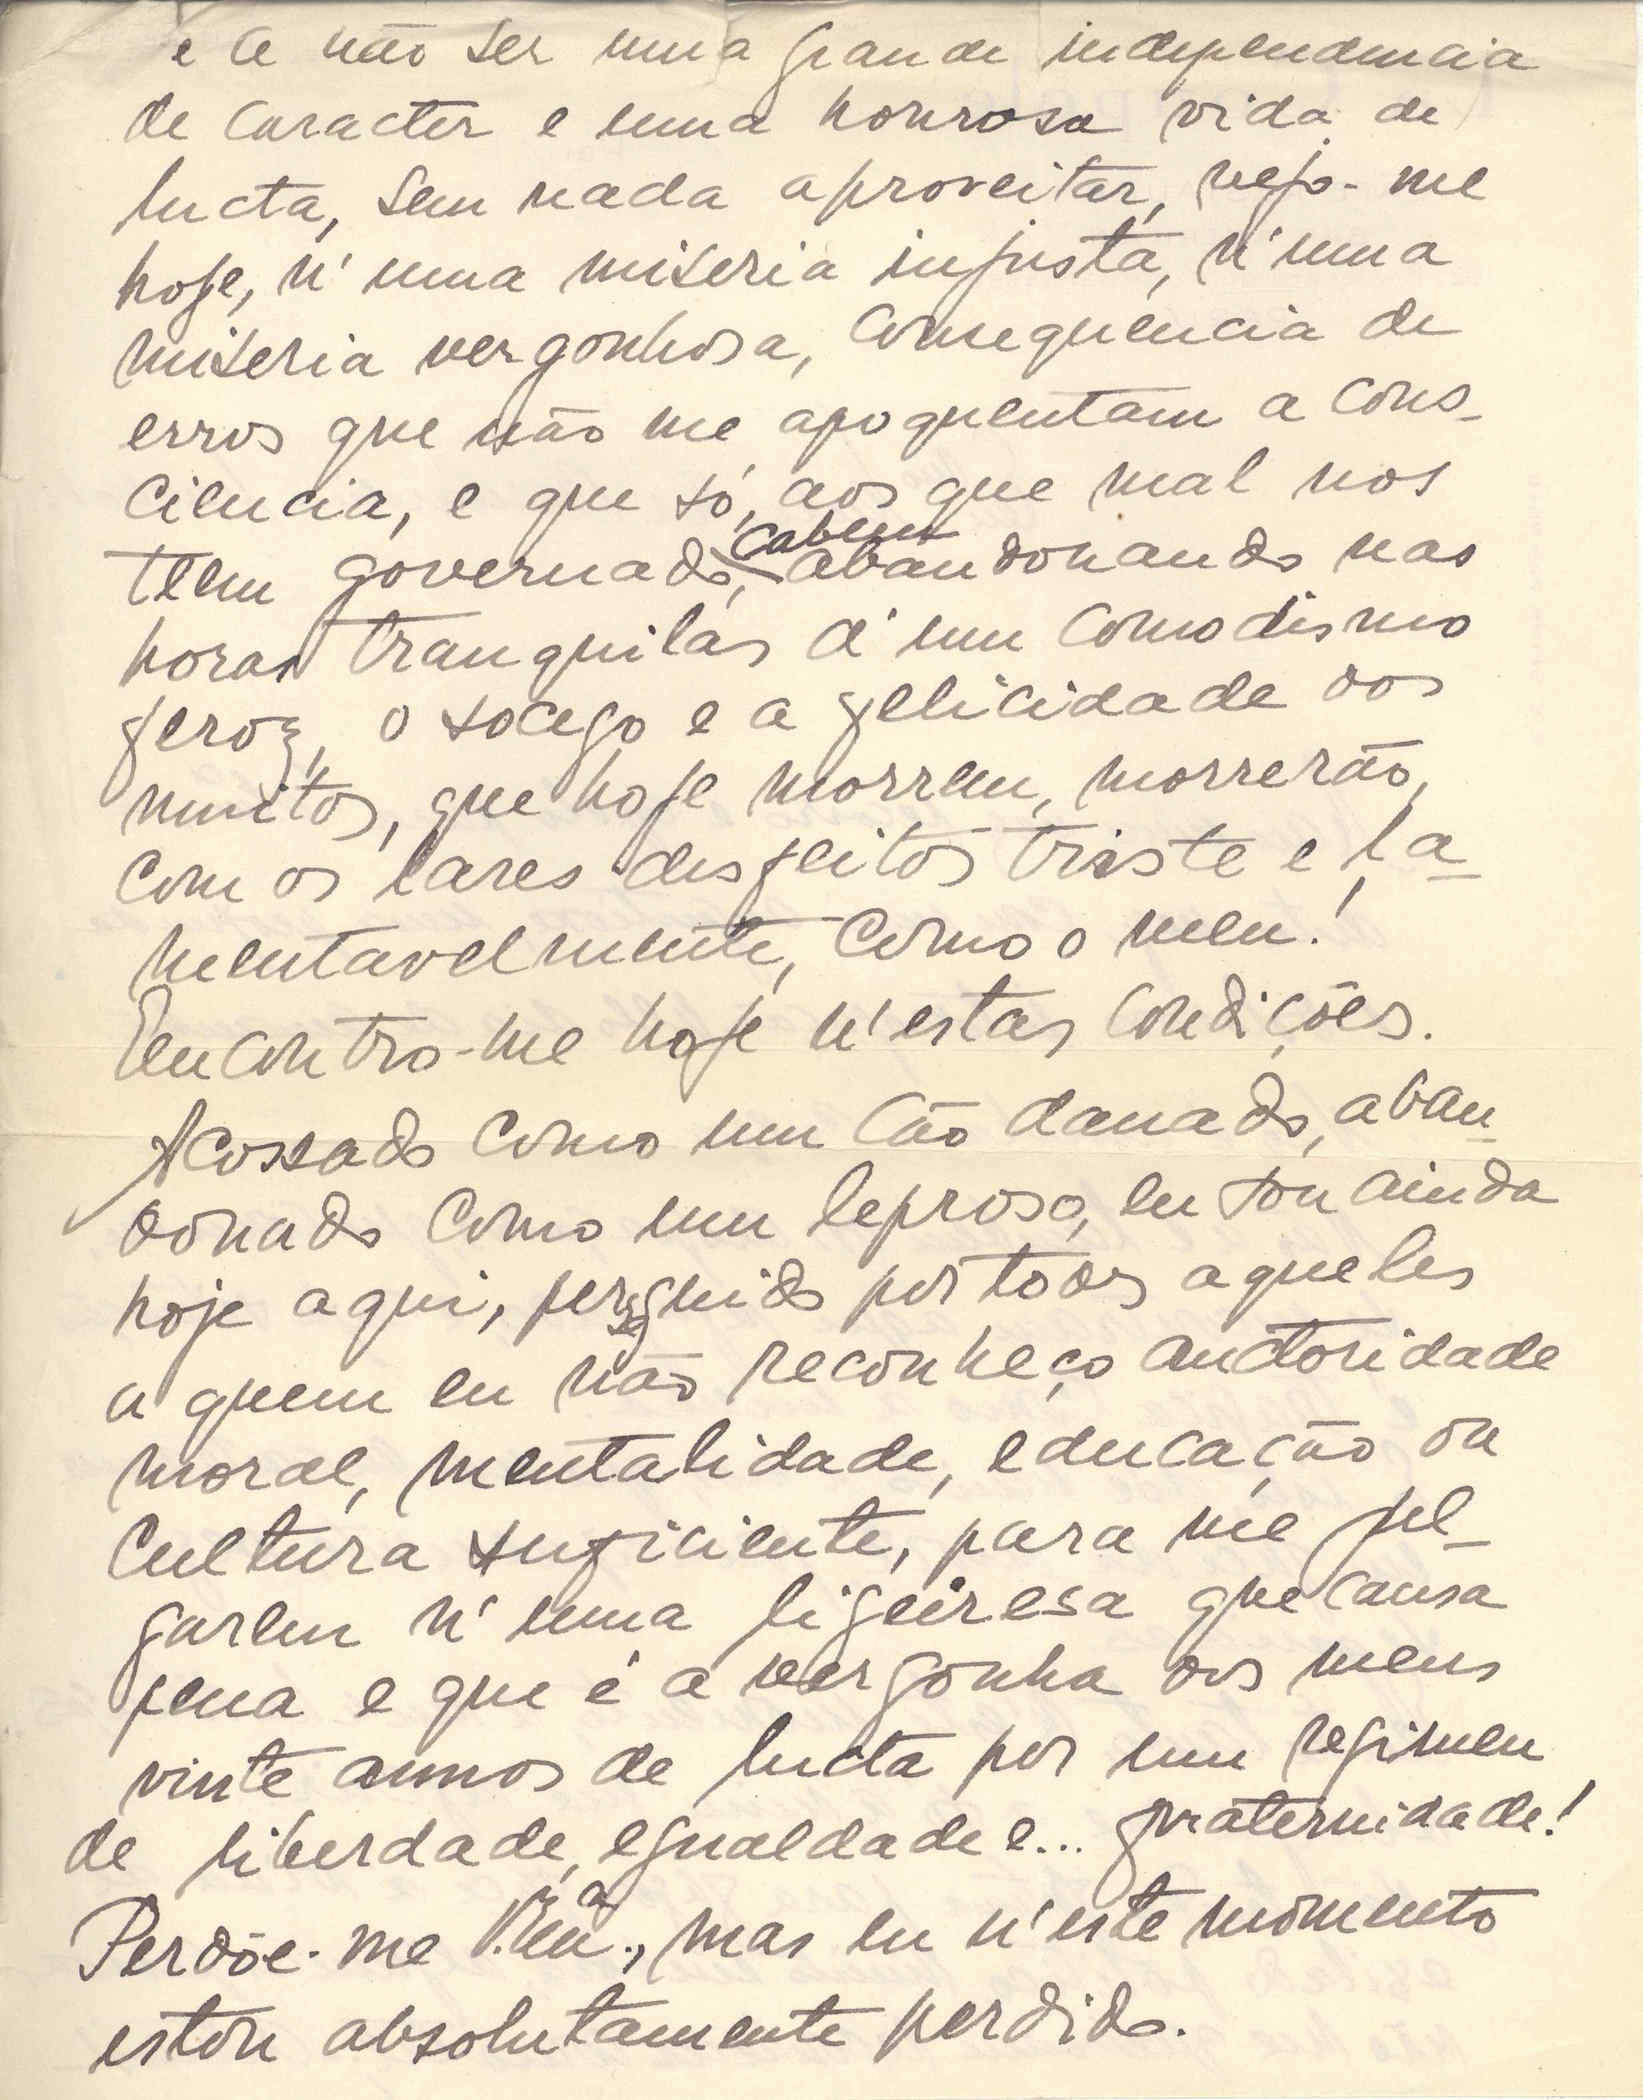 e a não ser uma grande independencia
de caracter e uma honrosa vida de
lucta, sem nada aproveitar, vejo-me
hoje, n'uma miseria injusta, n'uma
miseria vergonhosa, consequencia de
erros que não me apoquentam a cons-
ciencia, e que só, aos que mal nos
teem governado, cabem abandonando nas
horas tranquilas d'um comodismo
feroz, o socego e a felicidade dos
muitos, que hoje morrem, morrerão,
com os lares desfeitos triste e la-
mentavelmente, como o meu!
Encontro-me hoje n'estas condições.
Acossado como um cão danado, aban-
donado como um leproso, eu sou ainda
hoje aqui, perseguido por todos aqueles
a quem eu não reconheço auctoridade
moral, mentalidade, educação ou
cultura suficiente, para me jul-
garem n'uma ligeiresa que causa
pena e que é a vergonha dos meus
vinte annos de lucta por um regimen
de liberdade, egualdade e... fraternidade!
Perdõe-me V. Exª., mas eu n'este momento
estou absolutamente perdido.